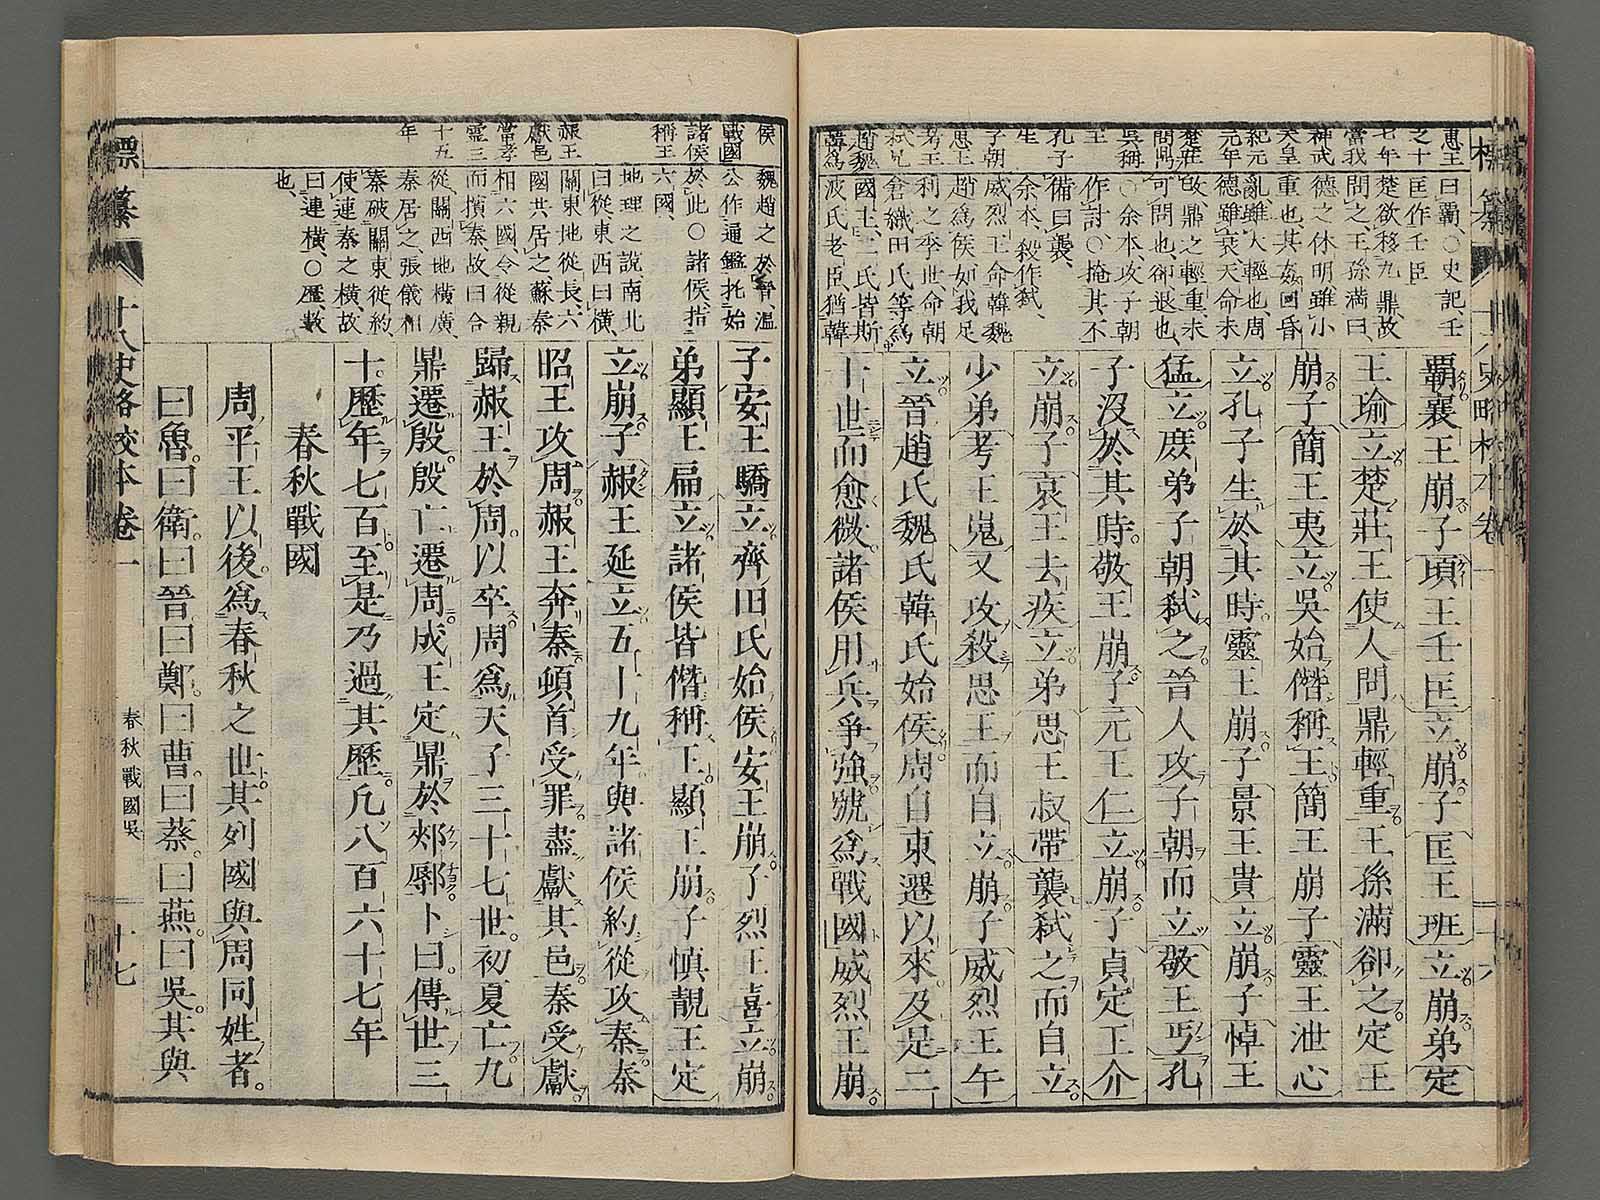 覇襄王崩子頃王壬匡立崩子匡王班立崩弟定
王瑜立楚莊王使人問鼎輕重王孫滿卻之定王
崩子簡王夷立吳始僭稱王簡王崩子靈王泄心
立孔子生於其時靈王崩子景王貴立崩子悼王
猛立庶弟子朝弑之晉人攻子朝而立敬王丐孔
子沒於其時敬王崩子元王仁立崩子貞定王介
立崩子哀王去疾立弟思王叔帶襲弑之而自立
少弟考王嵬又攻殺思王而自立崩子威烈王午
立晉趙氏魏氏韓氏始侯周自東遷以來及是二
十世而愈微諸侯用兵爭強號爲戰國威烈王崩
子安王驕立齊田氏始侯安王崩子烈王喜立崩
弟顯王扁立諸侯皆僭稱王顯王崩子愼靚王定
立崩子赧王延立五十九年與諸侯約從攻秦秦
昭王攻周赧王奔秦頓首受罪盡獻其邑秦受獻
歸赧王於周以卒周爲天子三十七世初夏亡九
鼎遷殷殷亡遷周成王定鼎於郟鄏卜曰傳世三
十歷年七百至是乃過其歷凡八百六十七年
春秋戰國
周平王以後爲春秋之世其列國與周同姓者
曰魯曰衛曰晉曰鄭曰曹曰蔡曰燕曰吳其與
惠王
之十
七年
當我
神武
天皇
紀元
元年
楚莊
問鼎
吳稱
王
孔子
生
子朝
思王
考王
弑兄
趙魏
韓爲
侯
戰國
諸侯
稱王
赧王
獻邑
當孝
靈三
十五
年
曰覇、○史記、壬
匡作壬臣
楚欲移九鼎、故
問之、王孫滿曰、
德之休明、雖小
重也、其姦回昏
亂、雖大輕也、周
德雖衰天命未
改、鼎之輕重、未
可問也、卻退也、
○余本、攻子朝
作討、○掩其不
備曰襲、
余本、殺作弑、
威烈王命韓魏
趙爲侯如我足
利之季世、命朝
倉織田氏等爲
國主、三氏皆斯
波氏老臣、猶韓
魏趙之於晉、溫
公作通鑑托始
於此○諸侯、指
六國、
地理之說、南北
曰從、東西曰橫、
關東地從長、六
國共居之、蘇秦
相六國令從親
而擯秦故曰合
從、關西地橫廣、
秦居之、張儀相
秦破關東從約、
使連秦之橫、故
曰連橫、○歷、數
也、
標纂
十八史略校本卷一
春秋戰國吳
十七